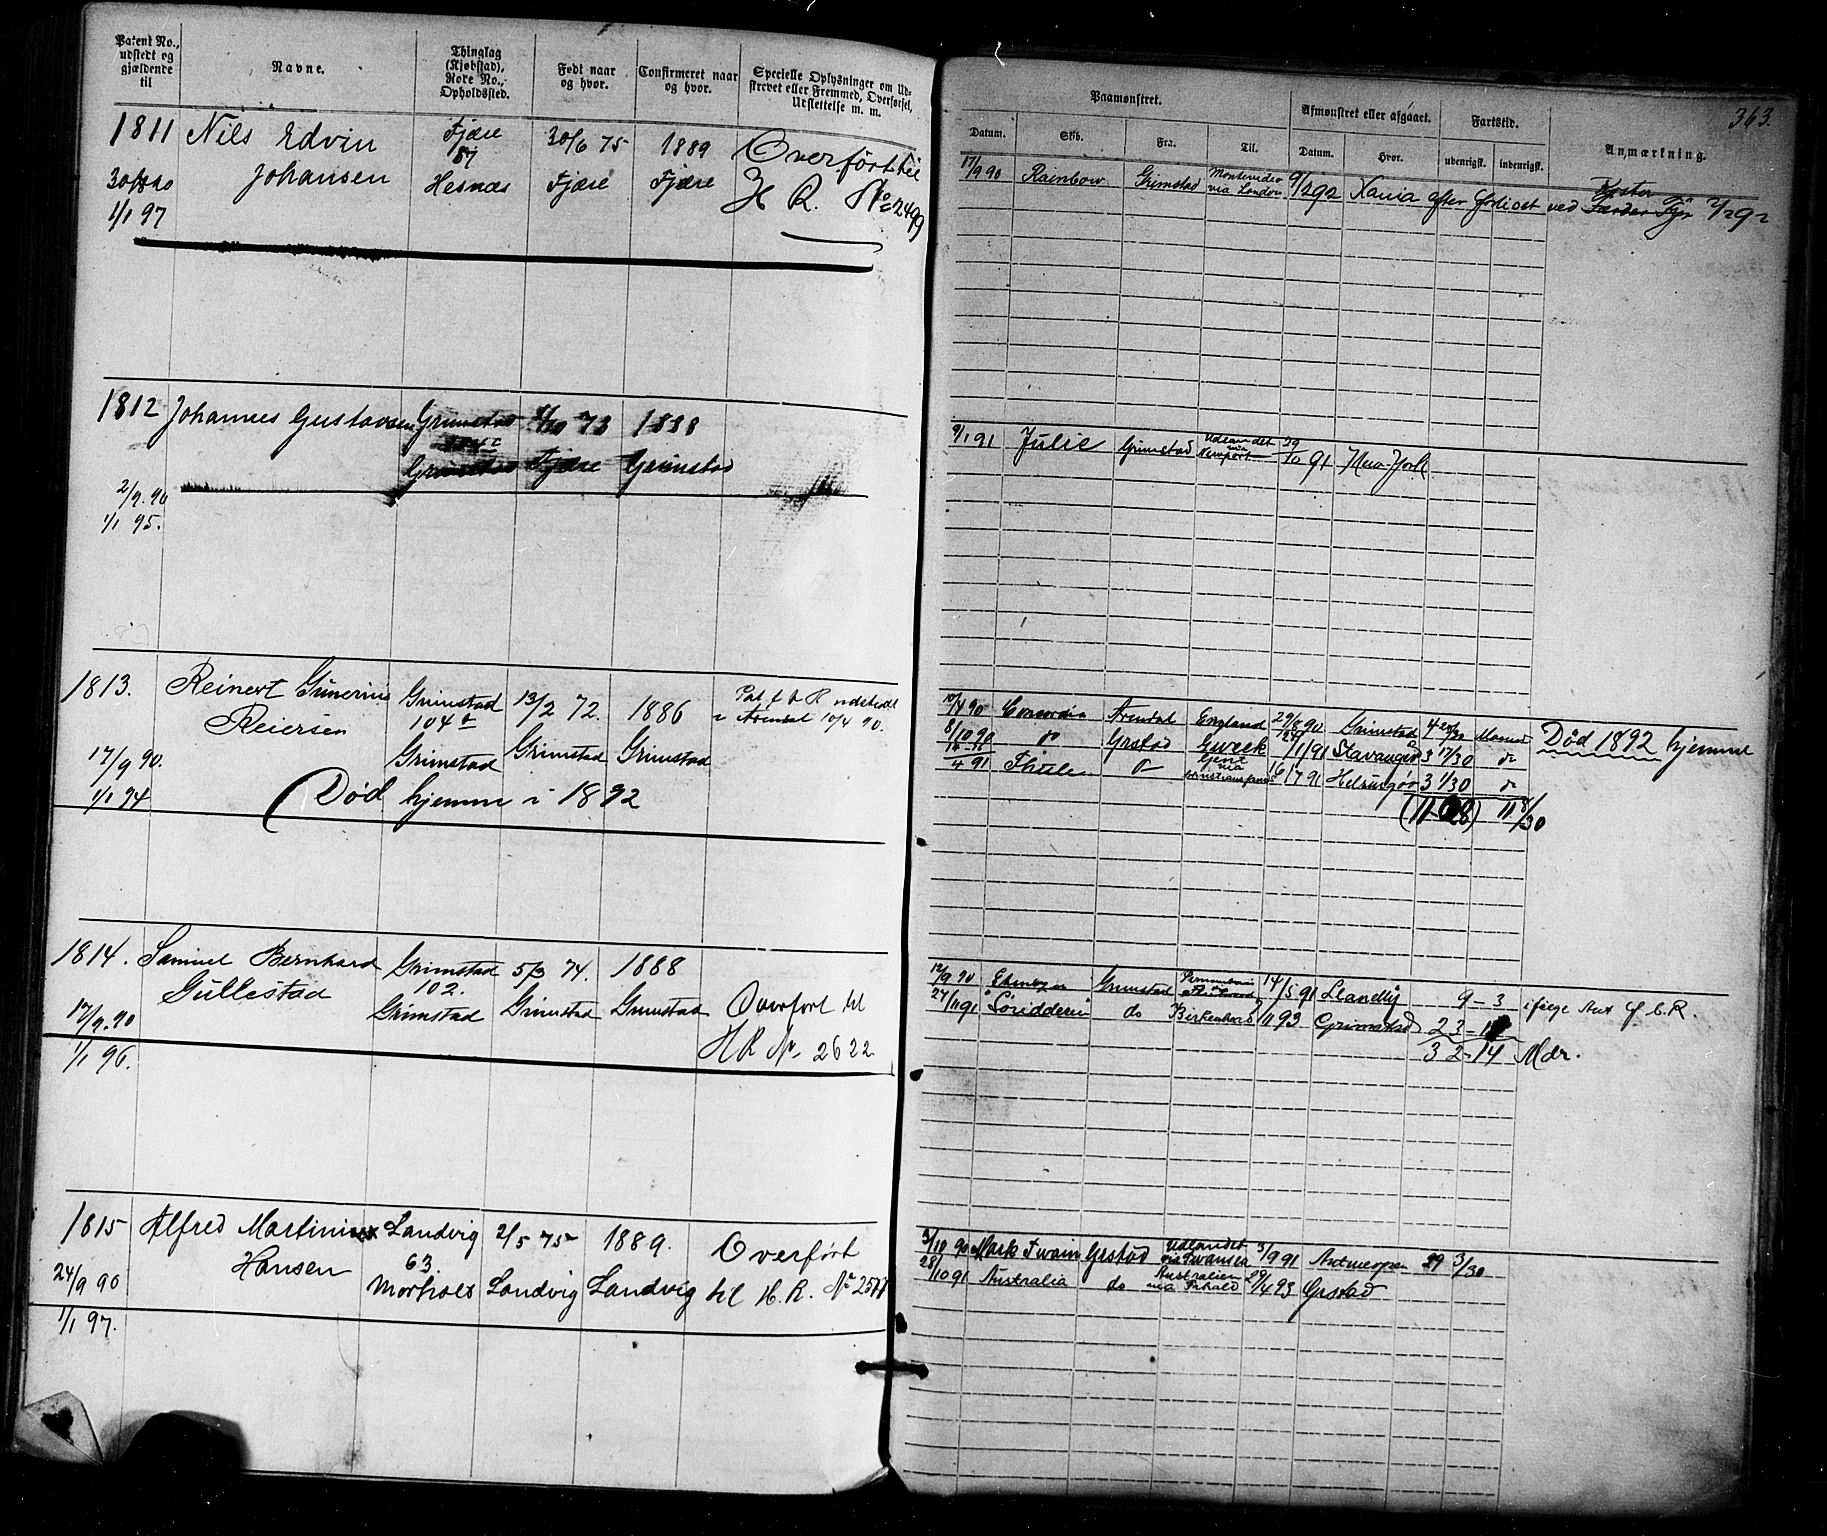 Patent No., udstedt og gjældende til
Navne.
Thinglag (Kjøbstad), Rore No., Opholdssted.
Født naar og hvor.
Confirmeret naar og hvor.
Specielle Oplysninger om Udskrevet eller Fremmed, Overførsel, Udslettelse m. m.
Paamønstret.
Datum.
Skb.
Fra.
Til.
Afmønstret eller afgaaet.
Datum.
Hvor.
Fartstid.
udenrigsk.
indenrigsk.
Anmærkning.
363.
1811 Nils Edvin Fjære 30/6 75 1889 Overført til
Johansen 57
Hesnæs Fjære Fjære H R. No 2499
1/1 97
17/9 90 Rainbow Grimstad Montevideo via London 9/2 92 Xania efter forliset ved 2/2 92
1812 Johannes Gustavsen Grimstad 73 1888
Grimstad Fjære Grimstad
2/9. 90
1/1 95.
9/1 91 Julie Grimstad Udlandet via Newport 29/10 91 New-York
1813. Reinert Gunerius Grimstad 13/2 72. 1886
Reiersen 104
Arendal 10/4 90.
17/9 90. Grimstad Grimstad Grimstad
1/1 94 Død hjemme i 1892
10/4 90 Concordia Arendal England Grimstad Død 1892 hjemme
8/10 90 do Grstad Stavanger 3 17/30 do
4 91 Thule Gent via 16/7 91 Helsingør 3 1/30 do
11 8/30
1814. Samuel Bernhard Grimstad 5/3 74. 1888
Gullestad 102.
17/9. 90 Grimstad Grimstad Grimstad Overført til
1/1 96. H R No 2622
12/9 90 Grimstad 14/5 91 Llanelly 9 - 3
27/11 91 do Birkenhead 93 Grimstad 23 -
32-14 Mdr.
1815 Alfred Martinius Landvig 2/5 75 1889. Overført
Hansen 63.
24/9 90 Morholt Landvig Landvig til H. R. No 2577
1/1 97.
3/10 90 Mark Twain Grstad Udlandet via Swansea 3/9 91 Antwerpen 3/30
28/10 91 Australia do Australien via 29/4 93 Grstad